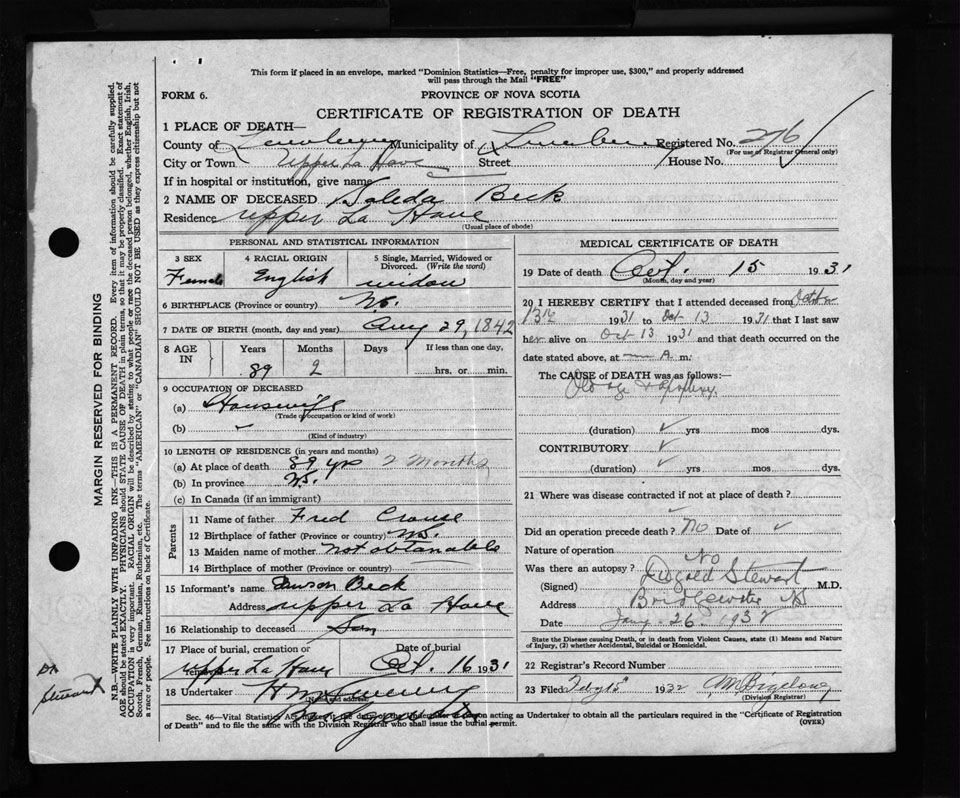 This form if placed in an envelope, marked "Dominion Statistics—Free, penalty for improper use, $300," and properly addressed
will pass through the Mail "FREE"
FORM 6. PROVINCE OF NOVA SCOTIA
CERTIFICATE OF REGISTRATION OF DEATH
1 PLACE OF DEATH—
County of Lunenburg Municipality of Lunenburg Registered No. 276
(For use of Registrar General only)
City or Town Upper La Have Street House No.
If in hospital or institution, give name
2 NAME OF DECEASED Beck
Residence Upper La Have
(Usual place of abode)
PERSONAL AND STATISTICAL INFORMATION
3 SEX 4 RACIAL ORIGIN 5 Single, Married, Widowed or Divorced. (Write the word)
Female English widow
6 BIRTHPLACE (Province or country) N.S.
7 DATE OF BIRTH (month, day and year) Aug 29, 1842
8 AGE IN Years Months Days If less than one day,
89 2 hrs. or min.
9 OCCUPATION OF DECEASED
(a) Housewife
(Trade, occupation or kind of work)
(b)
(Kind of industry)
10 LENGTH OF RESIDENCE (in years and months)
(a) At place of death 89 yrs 2 Months
(b) In province N.S.
(c) In Canada (if an immigrant)
Parents
11 Name of father Fred Crouse
12 Birthplace of father (Province or country) N.S.
13 Maiden name of mother not obtanable
14 Birthplace of mother (Province or country)
15 Informant's name Beck
Address upper La Have
16 Relationship to deceased Son
17 Place of burial, cremation or Date of burial
upper La Have Oct. 16 1931
18 Undertaker
(Name and address)
MEDICAL CERTIFICATE OF DEATH
19 Date of death Oct. 15 1931
(Month, day and year)
20 I HEREBY CERTIFY that I attended deceased from October
13th 1931 to Oct 13 1931 that I last saw
her alive on Oct 13 1931 and that death occurred on the
date stated above, at A m:
The CAUSE of DEATH was as follows:
Old age & apoplexy
(duration) yrs mos dys.
CONTRIBUTORY
(duration) yrs mos dys.
21 Where was disease contracted if not at place of death?
Did an operation precede death? No Date of
Nature of operation
Was there an autopsy? No
(Signed) Dugald Stewart M.D.
Address Bridgewater NS
Date Jany 26 1932
State the Disease causing Death, or in death from Violent Causes, state (1) Means and Nature
of Injury, (2) whether Accidental, Suicidal or Homicidal.
22 Registrar's Record Number
23 Filed Feby 15 1932
(Division Registrar)
Sec. 46—Vital Statistics Act acting as Undertaker to obtain all the particulars required in the "Certificate of Registration
of Death" and to file the same with the Division Registrar who shall issue the burial permit. (OVER)
MARGIN RESERVED FOR BINDING
N.B.—WRITE PLAINLY WITH UNFADING INK—THIS IS A PERMANENT RECORD. Every item of information should be carefully supplied.
AGE should be stated EXACTLY. PHYSICIANS should STATE CAUSE OF DEATH in plain terms, so that it may be properly classified. Exact statement of
OCCUPATION is very important. RACIAL ORIGIN will be described by stating to what people or race the deceased person belonged, whether English, Irish,
Scotch, French, German, Russian, Ruthenian, etc. The terms "AMERICAN" or "CANADIAN" SHOULD NOT BE USED as they express citizenship but not
a race or people. See instructions on back of Certificate.
Dr
Stewart